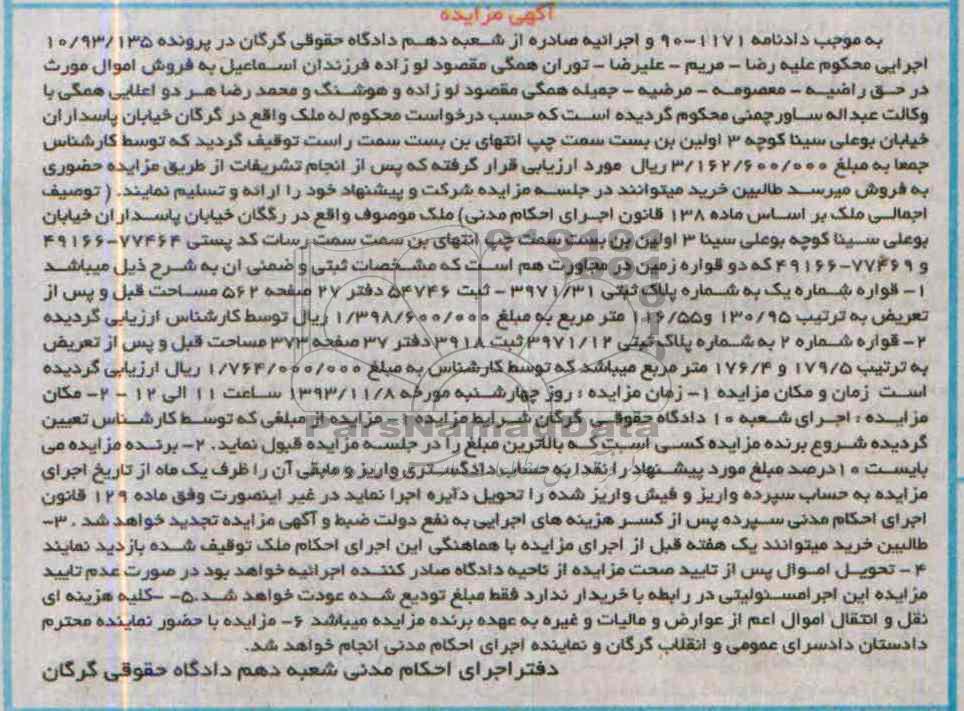 آگهی مزایده
به موجب دادنامه ۱۱۷۱-۹۰ و اجرائیه صادره از شعبه دهم دادگاه حقوقی گرگان در پرونده ۱۰/۹۳/۱۳۵
اجرایی محکوم علیه رضا - مریم - علیرضا - توران همگی مقصود لو زاده فرزندان اسماعیل به فروش اموال مورث
در حق راضیه - معصومه - مرضیه - جمیله همگی مقصود لو زاده و هوشنگ و محمد رضا هر دو اعلایی همگی با
وکالت عبداله ساورچمنی محکوم گردیده است که حسب درخواست محکوم له ملک واقع در گرگان خیابان پاسداران
خیابان بوعلی سینا کوچه ۳ اولین بن بست سمت چپ انتهای بن بست سمت راست توقیف گردید که توسط کارشناس
جمعا به مبلغ ۳/۱۶۲/۶۰۰/۰۰۰ ریال مورد ارزیابی قرار گرفته که پس از انجام تشریفات از طریق مزایده حضوری
به فروش میرسد طالبین خرید میتوانند در جلسه مزایده شرکت و پیشنهاد خود را ارائه و تسلیم نمایند. ( توصیف
اجمالی ملک بر اساس ماده ۱۳۸ قانون اجرای احکام مدنی) ملک موصوف واقع در رگگان خیابان پاسداران خیابان
بوعلی سینا کوچه بوعلی سینا ۳ اولین بن بست سمت چپ انتهای بن سمت سمت رسات کد پستی ۷۷۴۶۴-۴۹۱۶۶
و ۷۷۴۶۹-۴۹۱۶۶ که دو قواره زمین در مجاورت هم است که مشخصات ثبتی و ضمنی ان به شرح ذیل میباشد
۱- قواره شماره یک به شماره پلاک ثبتی ۳۹۷۱/۳۱ - ثبت ۵۴۷۴۶ دفتر ۲۷ صفحه ۵۶۲ مساحت قبل و پس از
تعریض به ترتیب ۱۳۰/۹۵ و۱۱۶/۵۵ متر مربع به مبلغ ۱/۳۹۸/۶۰۰/۰۰۰ ریال توسط کارشناس ارزیابی گردیده
۲- قواره شماره ۲ به شماره پلاک ثبتی ۳۹۷۱/۱۲ ثبت ۳۹۱۸ دفتر ۳۷ صفحه ۳۷۳ مساحت قبل و پس از تعریض
به ترتیب ۱۷۹/۵ و ۱۷۶/۴ متر مربع میباشد که توسط کارشناس به مبلغ ۱/۷۶۴/۰۰۰/۰۰۰ ریال ارزیابی گردیده
است زمان و مکان مزایده ۱- زمان مزایده : روز چهارشنبه مورخه ۱۳۹۳/۱۱/۸ ساعت ۱۱ الی ۱۲ - ۲- مکان
مزایده : اجرای شعبه ۱۰ دادگاه حقوقی گرگان شرایط مزایده ۱- مزایده از مبلغی که توسط کارشناس تعیین
گردیده شروع برنده مزایده کسی است که بالاترین مبلغ را در جلسه مزایده قبول نماید. ۲- برنده مزایده می
بایست ۱۰درصد مبلغ مورد پیشنهاد را نقدا به حساب دادگستری واریز و مابقی آن را ظرف یک ماه از تاریخ اجرای
مزایده به حساب سپرده واریز و فیش واریز شده را تحویل دایره اجرا نماید در غیر اینصورت وفق ماده ۱۲۹ قانون
اجرای احکام مدنی سپرده پس از کسر هزینه های اجرایی به نفع دولت ضبط و آگهی مزایده تجدید خواهد شد . ۳-
طالبین خرید میتوانند یک هفته قبل از اجرای مزایده با هماهنگی این اجرای احکام ملک توقیف شده بازدید نمایند
۴- تحویل اموال پس از تایید صحت مزایده از ناحیه دادگاه صادر کننده اجرائیه خواهد بود در صورت عدم تایید
مزایده این اجرامسئولیتی در رابطه با خریدار ندارد فقط مبلغ تودیع شده عودت خواهد شد.۵- -کلیه هزینه ای
نقل و انتقال اموال اعم از عوارض و مالیات و غیره به عهده برنده مزایده میباشد ۶- مزایده با حضور نماینده محترم
دادستان دادسرای عمومی و انقلاب گرگان و نماینده اجرای احکام مدنی انجام خواهد شد.
دفتر اجرای احکام مدنی شعبه دهم دادگاه حقوقی گرگان
ParsNamadData